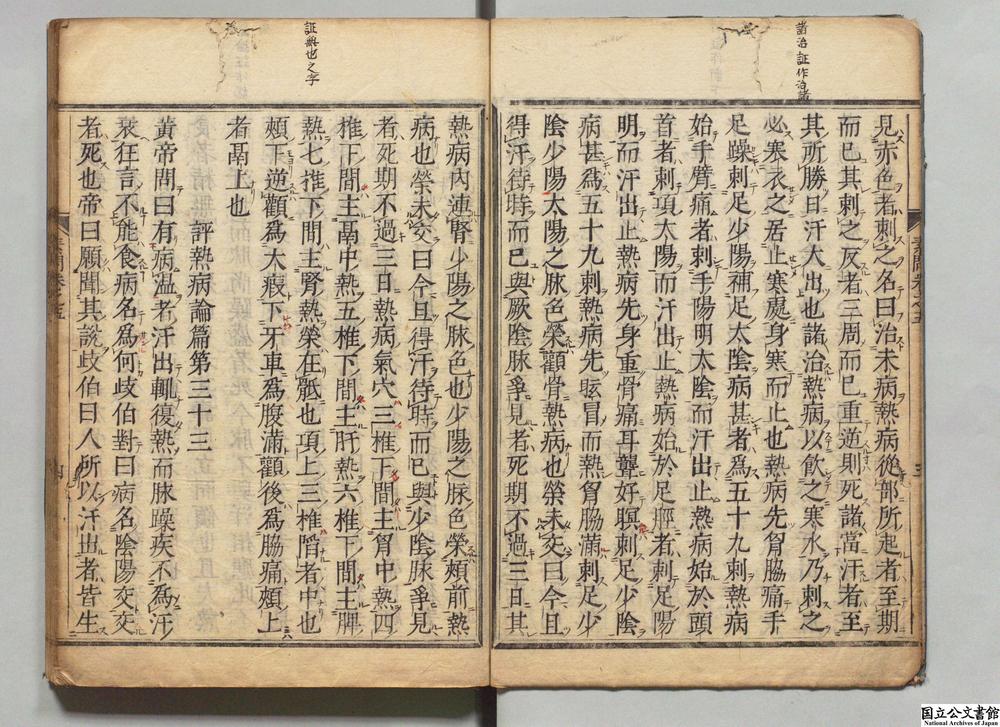 諸治証作治諸
見赤色者刺之名曰治未病熱病從部所起者至期
而已其刺之反者三周而已重逆則死諸當汗者至
其所勝日汗大出也諸治熱病以飲之寒水乃刺之
必寒衣之居止寒處身寒而止也熱病先胷脇痛手
足躁刺足少陽補足太陰病甚者為五十九刺熱病
始手臂痛者刺手陽明太陰而汗出止熱病始於頭
首者刺項太陽而汗出止熱病始於足脛者刺足陽
明而汗出止熱病先身重骨痛耳聾好瞑刺足少陰
病甚為五十九刺熱病先眩冒而熱胷脇滿刺足少
陰少陽太陽之脉色榮顴骨熱病也榮未交曰今且
得汗待時而已與厥陰脉爭見者死期不過三日其
素問卷之五
三
証無也之字
熱病內連腎少陽之脉色也少陽之脉色榮頰前熱
病也榮未交曰今且得汗待時而已與少陰脉爭見
者死期不過三日熱病氣穴三椎下間主胷中熱四
椎下間主鬲中熱五椎下間主肝熱六椎下間主脾
熱七椎下間主腎熱榮在骶也項上三椎陷者中也
頰下逆顴為大瘕下牙車為腹滿顴後為脇痛頰上
者鬲上也
評熱病論篇第三十三
黃帝問曰有病溫者汗出輒復熱而脉躁疾不為汗
衰狂言不能食病名為何歧伯對曰病名陰陽交交
者死也帝曰願聞其說歧伯曰人所以汗出者皆生
素問卷之五
四
国立公文書館
National Archives of Japan